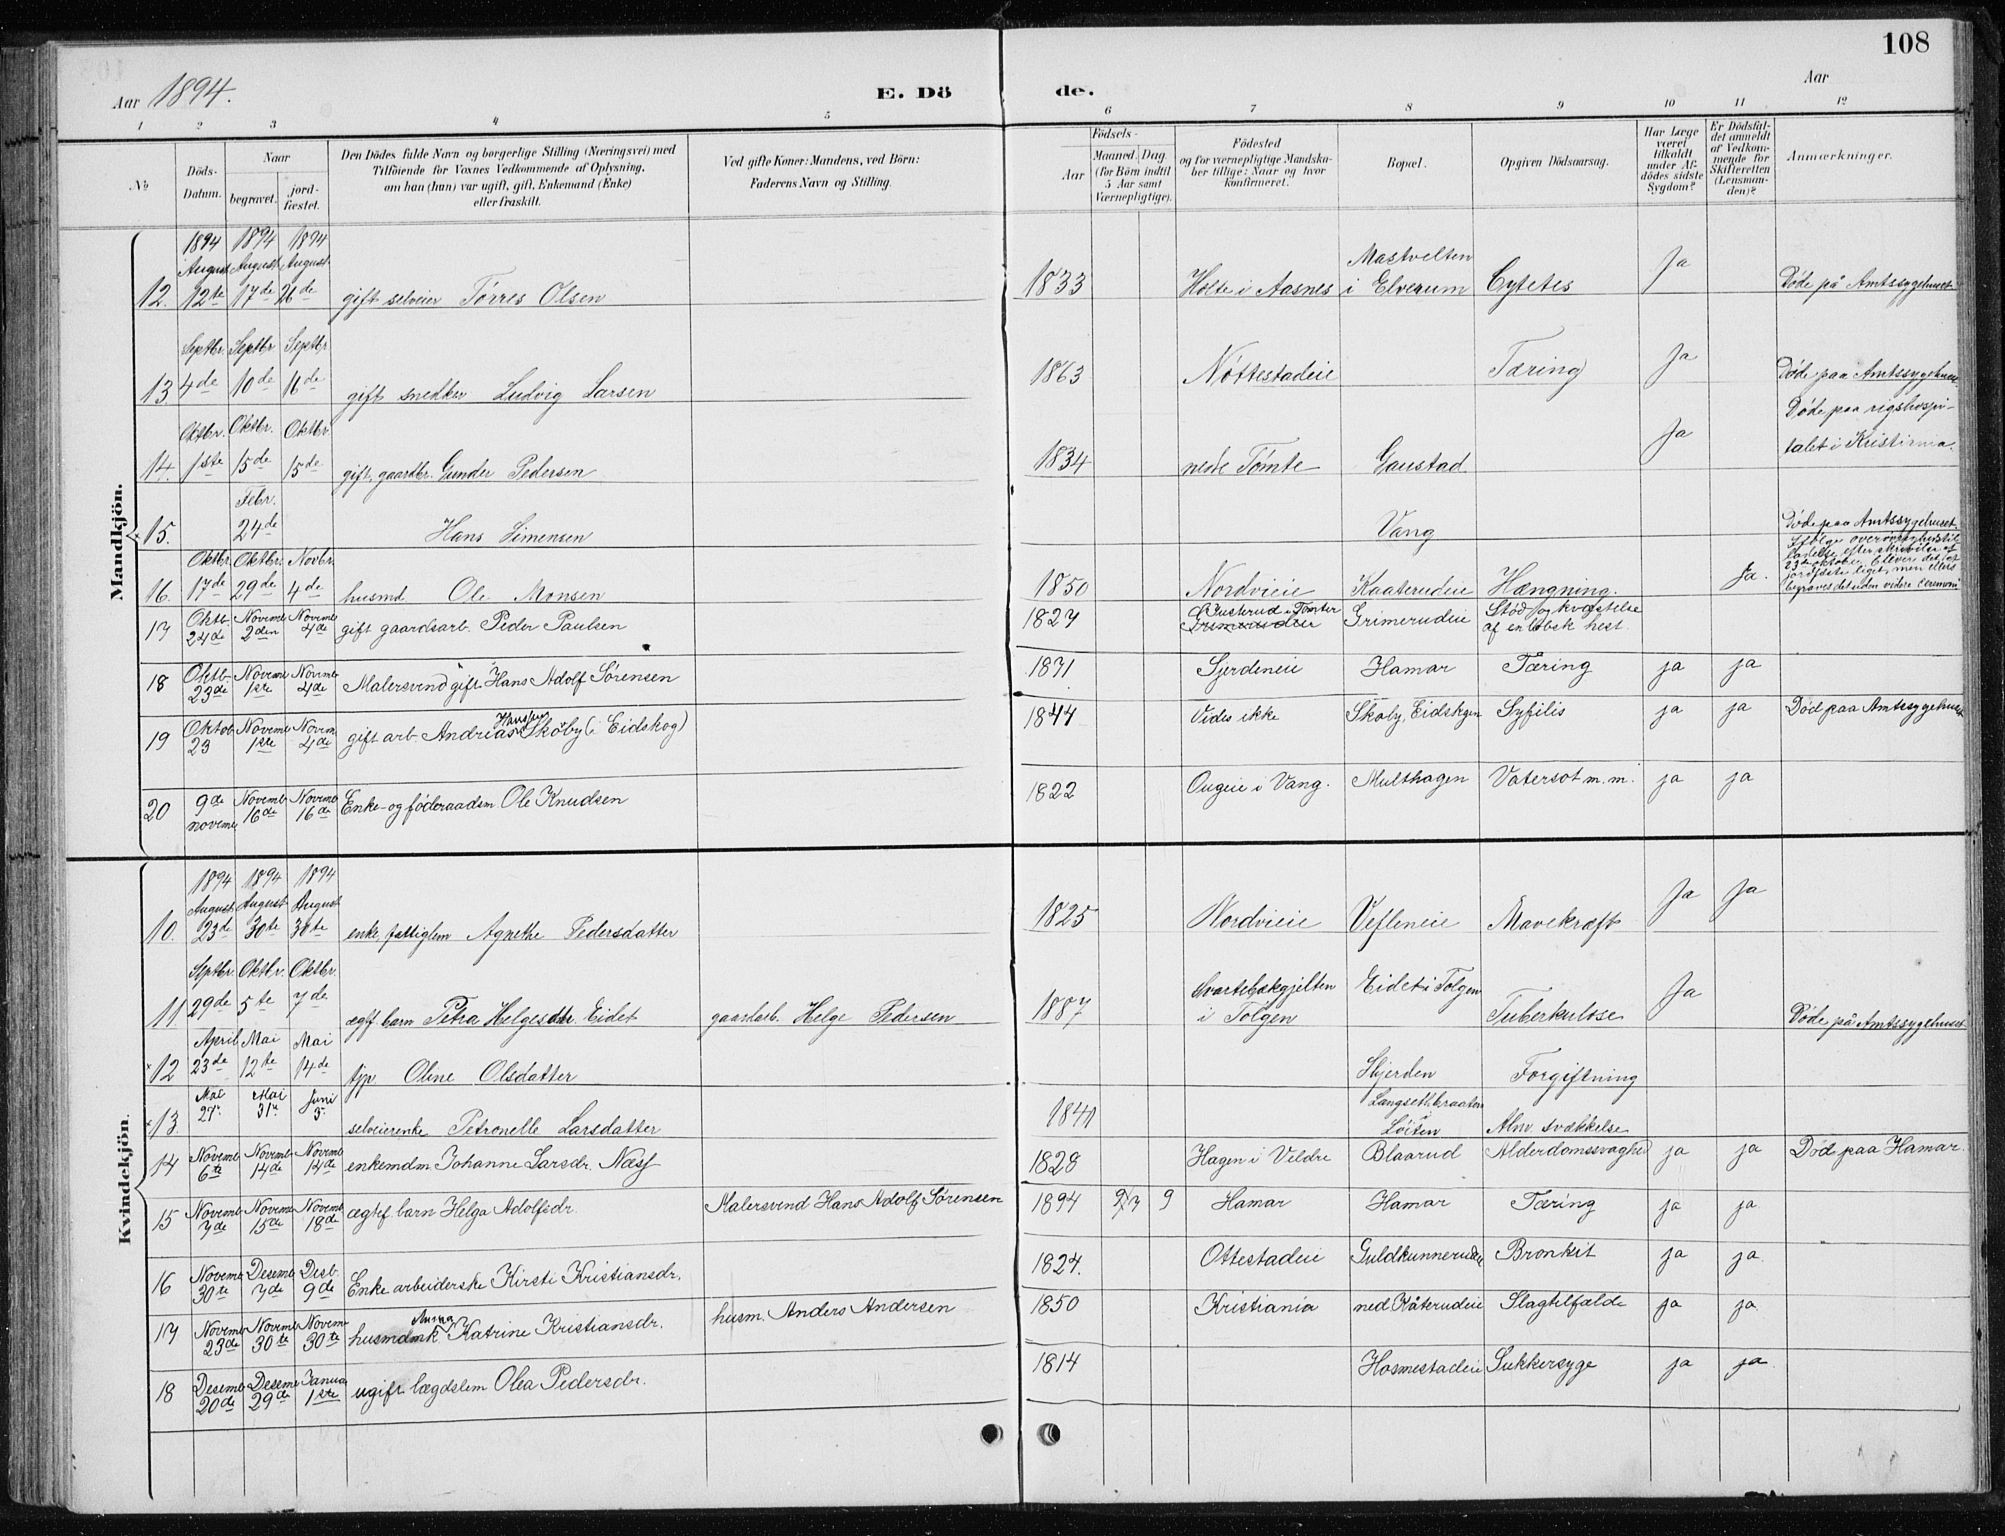 108
Aar 1894.
E. Dö de.
Aar
1 2 3 4 5 6 7 8 9 10 11 12
No
Döds-Datum.
Naar
begravet.
jord-fæstet.
Den Dödes fulde Navn og borgerlige Stilling (Næringsvei) med
Tilföiende for Voxnes Vedkommende af Oplysning,
om han (hun) var ugift, gift, Enkemand (Enke)
eller fraskilt.
Ved gifte Koner: Mandens, ved Börn:
Faderens Navn og Stilling.
Födsels-
Aar
Maaned. Dag
(for Börn indtil
5 Aar samt
Værnepligtige).
Födested
og for værnepligtige Mandska-
ber tillige: Naar og hvor
konfirmeret.
Bopæl.
Opgiven Dödsaarsag.
Har Læge
været
tilkaldt
under Af-
dödes sidste
Sygdom?
Er Dödsfal-
det anmeldt
af Vedkom-
mende for
Skifteretten
(Lensman-
den)?
Anmærkninger.
Mandkjön.
12. 1894 August 12te 1894 August 17de 1894 August 26de gift selveier Tørres Olsen 1833 Holte i Aasnes Mastvelten i Elverum Cytetes Ja Døde på Amtssygehuset
13 Septbr. 4de Septbr 10de Septbr 16de gift snedker Ludvig Larsen 1863 Nøttestadeie Tæring Ja Døde paa Amtssygehuset
14. Oktbr. 1ste Oktbr. 15de Oktbr 15de gift gaardbr. Gunder Pedersen 1834 nede Tømte Gaustad Ja Døde paa rigshospi-
talet i Kristiania.
15. Febr. 24de Hans Simensen Vang Døde paa Amtssygehuset.
16. Oktbr. 17de Oktbr. 29de Novbr. 4de husmd Ole Monsen 1850 Nordvieie Kaaterudeie Hængning. Ja. Ifølge
begraves det uden videre Ceremoni
17 Oktb. 24de Novemb 2den Novemb 4de gift gaardsarb. Peder Paulsen 1827 i Tomter Grimerudeie Grimerudeie Stød og kvæstelse
af en løbsk hest.
18 Oktb. 23de Novemb 1ste Novemb 4de Malersvend gift Hans Adolf Sørensen 1871 Sjerdeneie Hamar Tæring ja ja
19 Oktob 23 Novemb 1ste Novem 4de gift arb Andreas Hansen Skøby (i Eidskog) 1844 Vides ikke Skøby, Eidskogen Syfilis ja ja Død paa Amtssygehuset
20 9de novemb Novemb 16de Novemb 16de Enke- og føderaadsm Ole Knudsen 1822 Ougeie i Vang. Multhagen Vatersot m.m. ja ja
Kvindekjön.
10. 1894 August 23de 1894 August 30te 1894 August 30te enke fattiglem Agnethe Pedersdatter 1825 Nordvieie Vefleneie Mavekræft Ja Ja
11 Septbr. 29de Oktbr. 5te Oktbr. 7de ægtf barn Petra Helgesdtr. Eidet gaardarb. Helge Pedersen 1887 Svartebækgjelten
i Tolgen Eidet i Tolgen Tuberkulose Ja Døde på Amtssygehuset
12 April 23de Mai 12te Mai 14de tjp Oline Olsdatter Skjerden Forgiftning
13. Mai 27. Mai 31te Juni 3. selveierenke Petronelle Larsdatter 1841 Langsethbraaten
Løiten Alm. svækkelse
14 Novemb 6te Novemb 14de Novemb 14de enkemdm Johanne Larsdr. Næss 1828 Hagen i Veldre Blaarud Alderdomssvaghed ja ja Død paa Hamar.
15 Novemb 7de Novemb 15de Novemb 18de ægtef. barn Helga Adolfsdr. Malersvend Hans Adolf Sørensen 1894 9 Hamar Hamar Tæring ja ja
16 Novemb 30te Desemb 7de Desb. 9de Enke arbeiderske Kirsti Kristiansdr. 1827. Ottestadeie Guldkunnerudeie Bronkit ja ja
17 Novemb 23de Novemb 30te Novemb 30te husmdmk Anna Katrine Kristiansdr. husm. Anders Andersen 1850 Kristiania ned Kåterudeie Slagtilfælde ja ja
18 Desemb 20de Desemb 29de Janua 1ste ugift lægdslem Olea Pedersdr. 1814 Hosmestadeie Sukkersyge ja ja